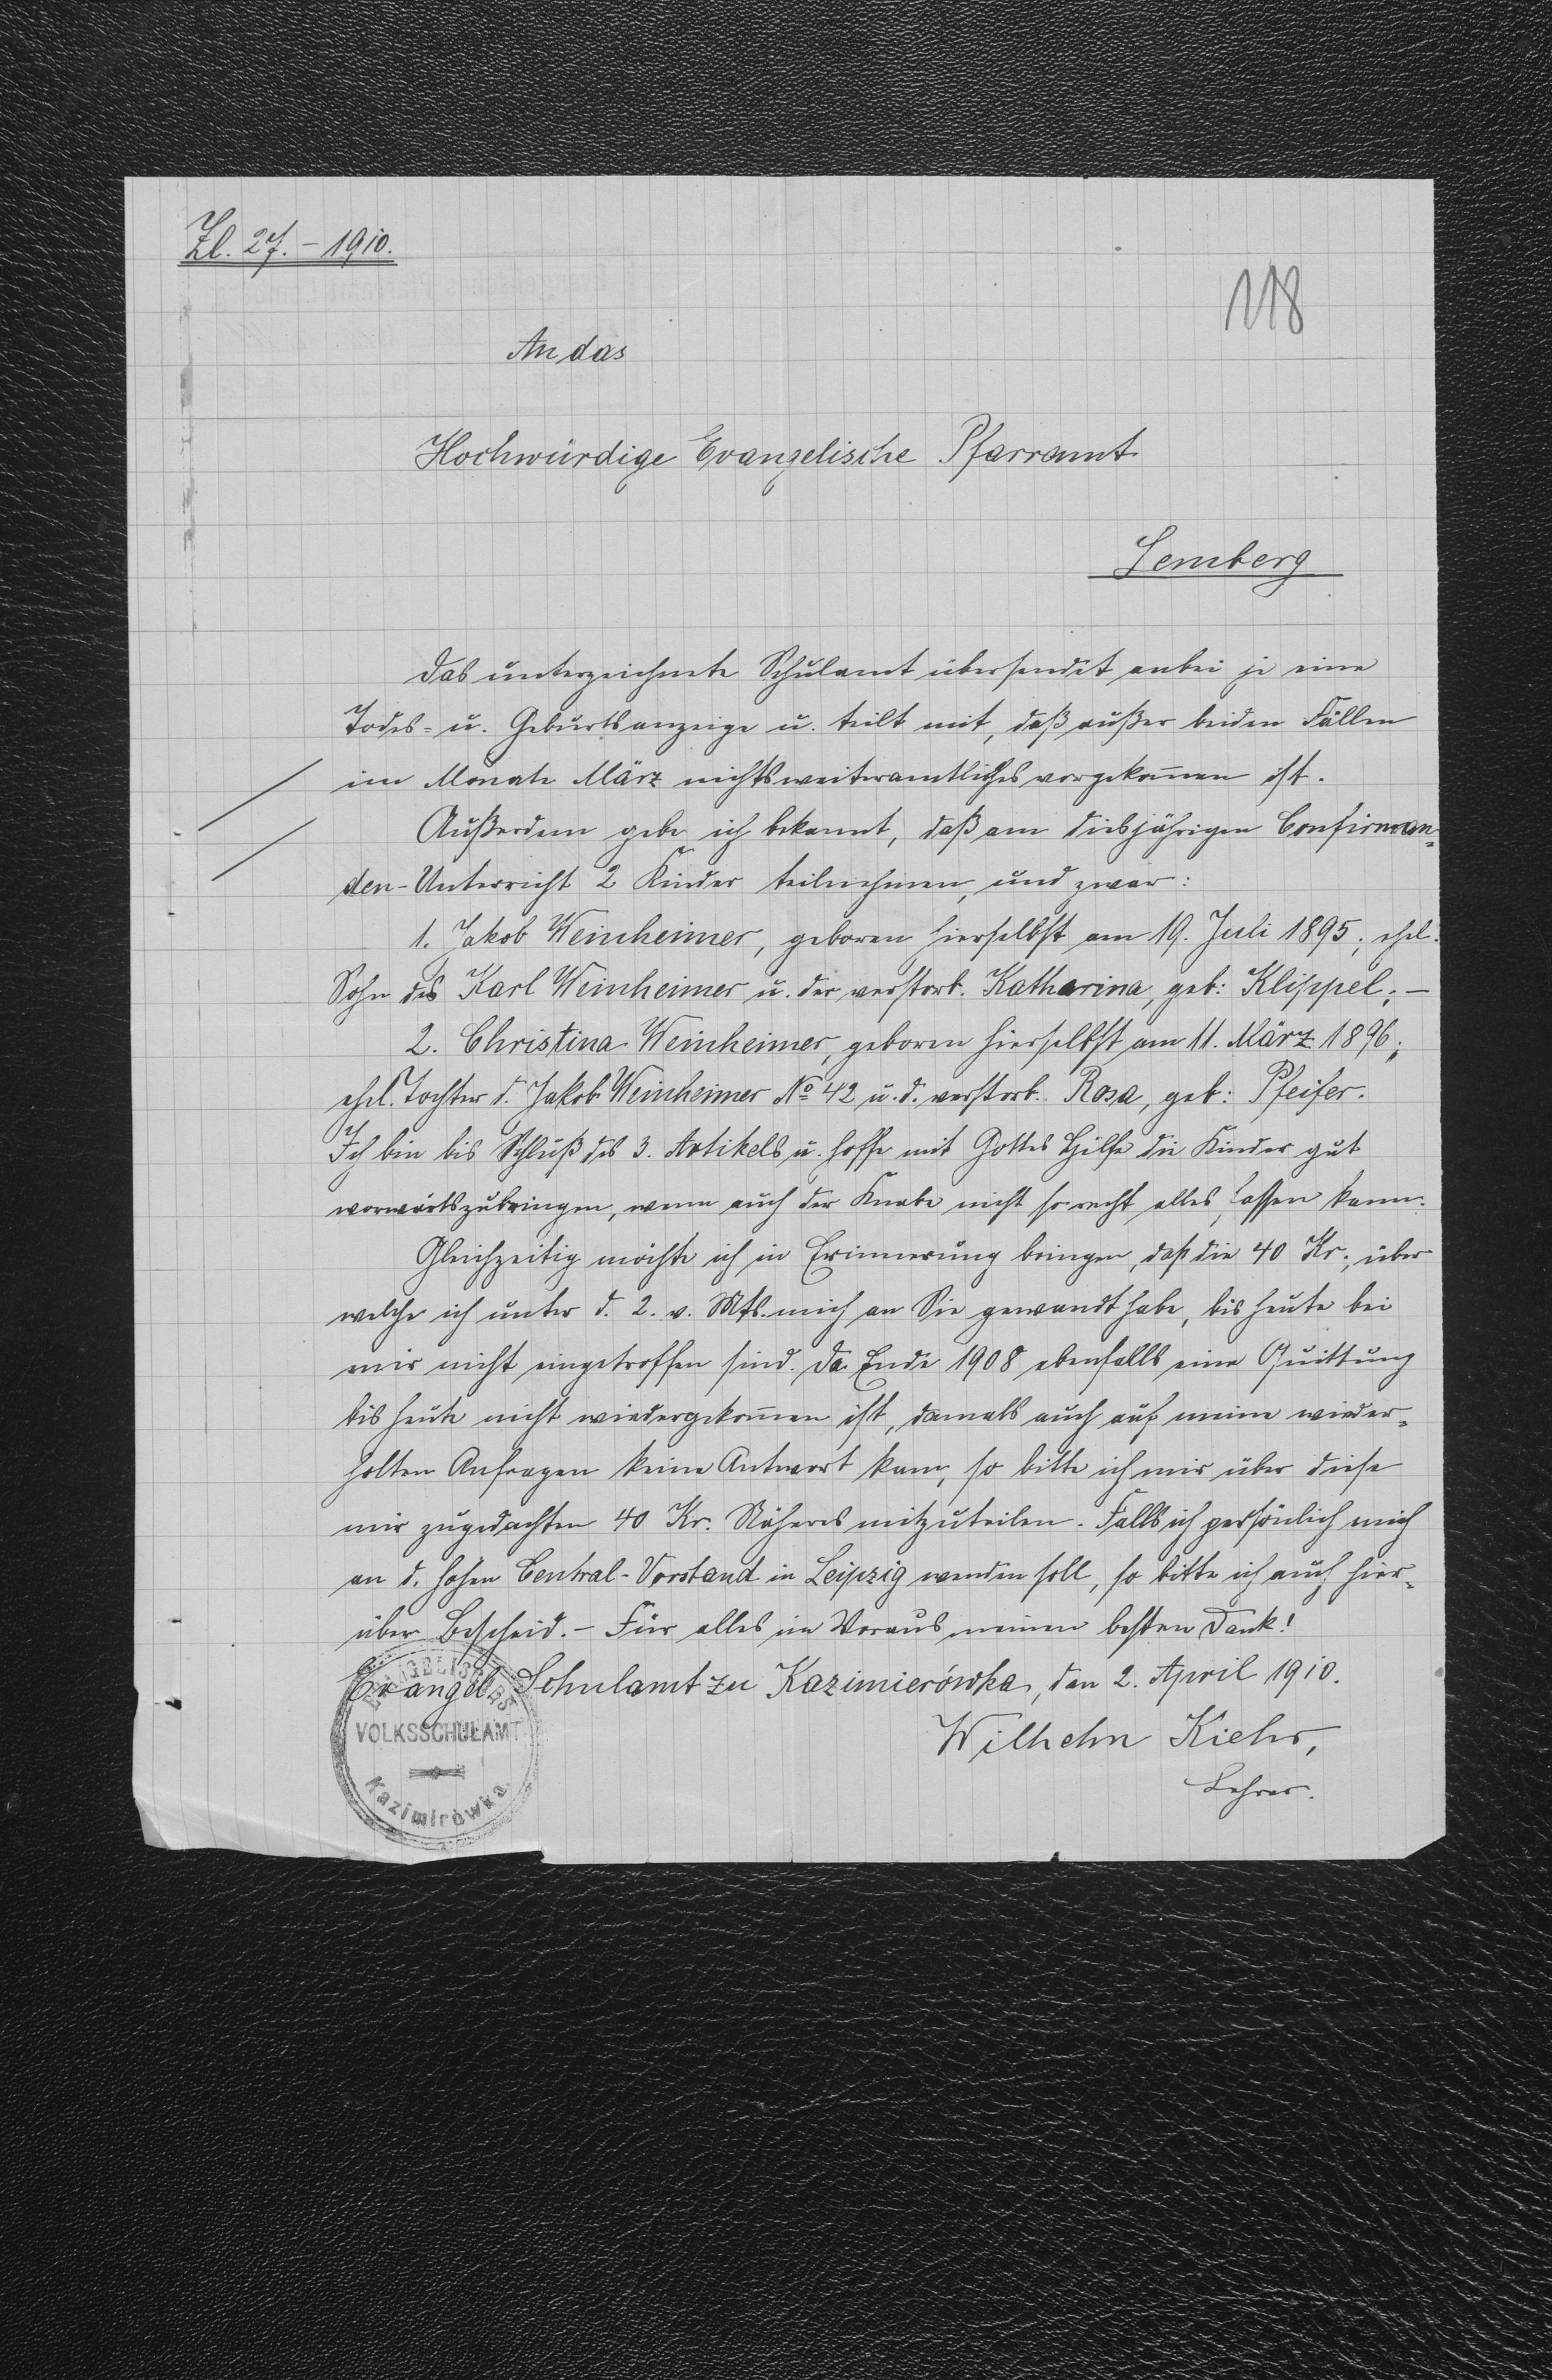 Zl. 27. – 1910.
118
An das
Hochwürdige Evangelische Pfarramt
Lemberg
Das unterzeichnete Schulamt übersendet anbei je eine
Todes- u. Geburtsanzeige u. teilt mit, daß außer beiden Fällen
im Monate März nichts weiter amtliches vorgekom̅en ist.
Außerdem gebe ich bekannt, daß am diesjährigen Confirman-
den-Unterricht 2 Kinder teilnehmen, und zwar:
1. Jakob Weinheimer, geboren hierselbst am 19. Juli 1895; ehel.
Sohn des Karl Weinheimer u. der verstorb. Katharina, geb: Klippel; –
2. Christina Weinheimer, geboren hierselbst am 11. März 1896;
ehel. Tochter d. Jakob Weinheimer No 42 u. d. verstorb. Rosa, geb: Pfeifer.
Ich bin bis Schluß des 3. Artikels u. hoffe mit Gottes Hilfe die Kinder gut
vorwärtszubringen, wenn auch der Knabe nicht so recht alles fassen kann.
Gleichzeitig möchte ich in Erinnerung bringen, daß die 40 Kr., über
welche ich unter d. 2. v. Mts. mich an Sie gewandt habe, bis heute bei
mir nicht eingetroffen sind. Da Ende 1908 ebenfalls eine Quittung
bis heute nicht wiedergekom̅en ist, damals auch auf meine wieder-
holten Anfragen keine Antwort kam, so bitte ich mir über diese
mir zugedachten 40 Kr. Näheres mitzuteilen. Falls ich persönlich mich
an d. hohen Central-Vorstand in Leipzig wenden soll, so bitte ich auch hier-
über Bescheid. – Für alles im Voraus meinen besten Dank!
Evangel. Schulamt zu Kazimierówka, den 2. April 1910.
Wilhelm Kiehr,
Lehrer.
EVANGELISCHES
VOLKSSCHULAMT
Kazimirówka